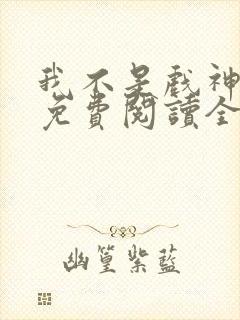 我不是戲神
免費閱讀全
幽篁紫藍